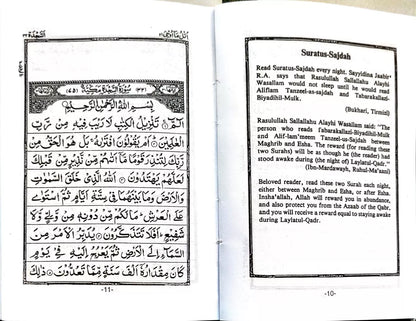 السجدة ٣٢
اتل ما اوحی ٢١
سُوْرَةُ السَّجْدَةِ مَكِّيَّةٌ
بِسْمِ اللهِ الرَّحْمٰنِ الرَّحِيْمِ
الٓمّٓ ۚ تَنْزِيْلُ الْكِتٰبِ لَا رَيْبَ فِيْهِ مِنْ رَّبِّ
الْعٰلَمِيْنَ ؕ اَمْ يَقُوْلُوْنَ افْتَرٰىهُ ۚ بَلْ هُوَ الْحَقُّ مِنْ
رَّبِّكَ لِتُنْذِرَ قَوْمًا مَّاۤ اَتٰىهُمْ مِّنْ نَّذِيْرٍ مِّنْ قَبْلِكَ
لَعَلَّهُمْ يَهْتَدُوْنَ اَللهُ الَّذِيْ خَلَقَ السَّمٰوٰتِ
وَالْاَرْضَ وَمَا بَيْنَهُمَا فِيْ سِتَّةِ اَيَّامٍ ثُمَّ اسْتَوٰى
عَلَى الْعَرْشِ ؕ مَا لَكُمْ مِّنْ دُوْنِهٖ مِنْ وَّلِيٍّ وَّلَا
شَفِيْعٍ ؕ اَفَلَا تَتَذَكَّرُوْنَ يُدَبِّرُ الْاَمْرَ مِنَ
السَّمَآءِ اِلَى الْاَرْضِ ثُمَّ يَعْرُجُ اِلَيْهِ فِيْ يَوْمٍ
كَانَ مِقْدَارُهٗۤ اَلْفَ سَنَةٍ مِّمَّا تَعُدُّوْنَ ذٰلِكَ
-11-
Suratus-Sajdah
Read Suratus-Sajdah every night. Sayyidina Jaabir
R.A. says that Rasulullah Sallallahu Alayhi
Wasallam would not sleep until he would read
Aliflam Tanzeel-as-sajdah and Tabarakallazi-
Biyadihil-Mulk.
(Bukhari, Tirmizi)
Rasulullah Sallallahu Alayhi Wasallam said: "The
person who reads Tabarakallazi-Biyadihil-Mulk
and Alif-lam'meem Tanzeel-us-Sajdah between
Maghrib and Esha. The reward (for reading these
two Surahs) will be as though he (the reader) had
stood awake during (the night of) Laylatul-Qadr."
(Ibn-Mardawayh, Ruhul-Ma'aani)
Beloved reader, read these two Surah each night,
either between Maghrib and Esha, or after Esha.
Insha'allah, Allah will reward you in abundance,
and also protect you from the Azaab of the Qabr,
and you will receive a reward equal to staying awake
during Laylatul-Qadr.
-10-